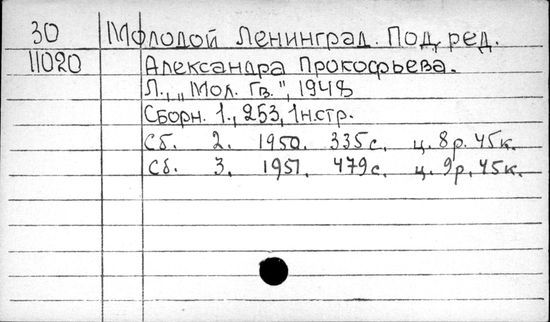 30 Молодой Ленинград. Под ред.
11020 Александра Прокофьева.
Л., „Мол. Гв.", 1948
Сборн. 1., 253, 1 н.стр.
Сб. 2. 1950. 335 с. ц. 8 р. 45 к.
Сб. 3. 1951. 479 с. ц. 9 р. 45 к.